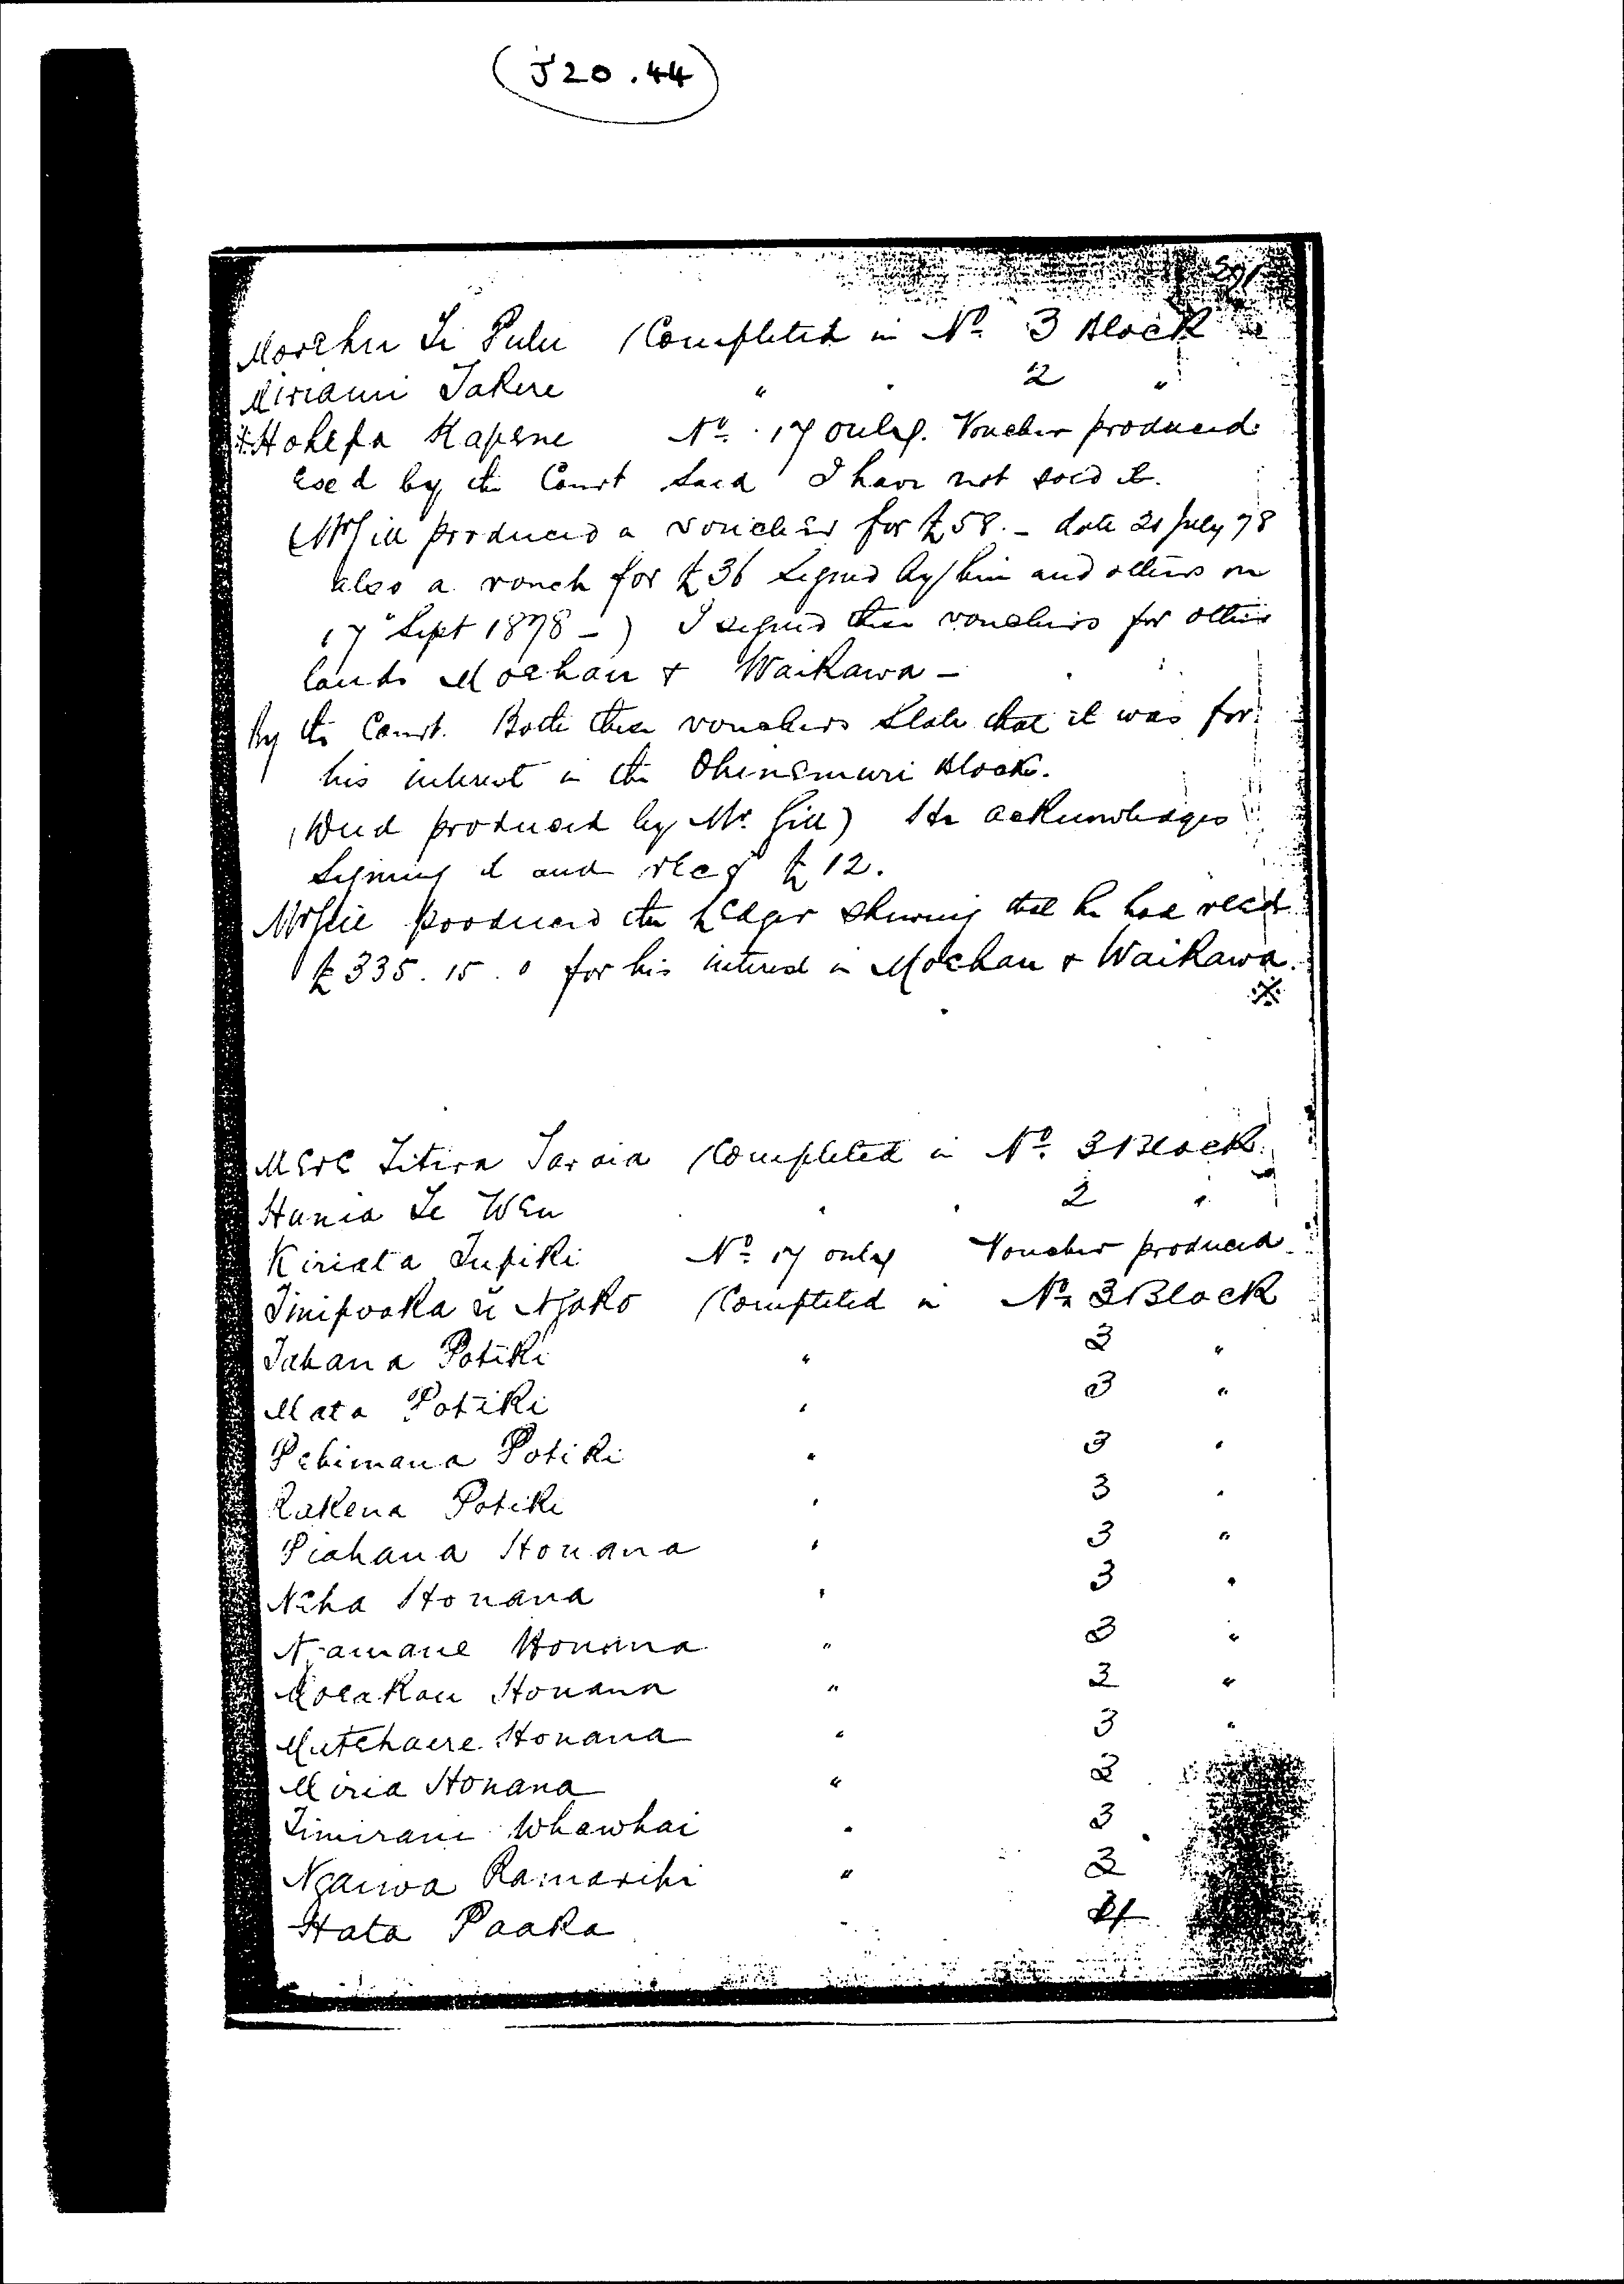 (J20.44)
391
Morehu Te Pulu (Completed in No. 3 Block
Miriami Takere " " 2 "
*Hohepa Kapene No. 17 only. Voucher produced
Exd by the Court Said I have not sold it.
(Mr Gill produced a voucher for £58. - date 20 July 78
also a vouch for £36 signed by him and others on
17" Sept 1878 -) I signed these vouchers for other
lands Moehau & Waikawa -
By the Court. Both these vouchers state that it was for
his interest in the Ohinemuri Block.
(Deed produced by Mr. Gill) He acknowledges
signing it and recg £12.
Mr Gill produced the Ledger shewing that he had recd
£335.15.0 for his interest in Moehau & Waikawa.
※
Mere Titira Taraia (Completed in No. 3 Block.
Hunia Te Weu " " 2 "
Kiriata Tupiki No. 17 only Voucher produced
Tinipoaka te Ngako (Completed in No. 3 Block
Tahana Potiki " 3 "
Mata Potiki " 3 "
Pehimana Potiki " 3 "
Rakena Potiki " 3 "
Piahana Honana " 3 "
Neha Honana " 3 "
Ngamane Honana " 3 "
Moeakau Honana " 3 "
Mutehaere Honana " 3 "
Miria Honana " 3
Timirani Whawhai " 3
Ngaiwa Ramarihi " 3
Hata Paaka